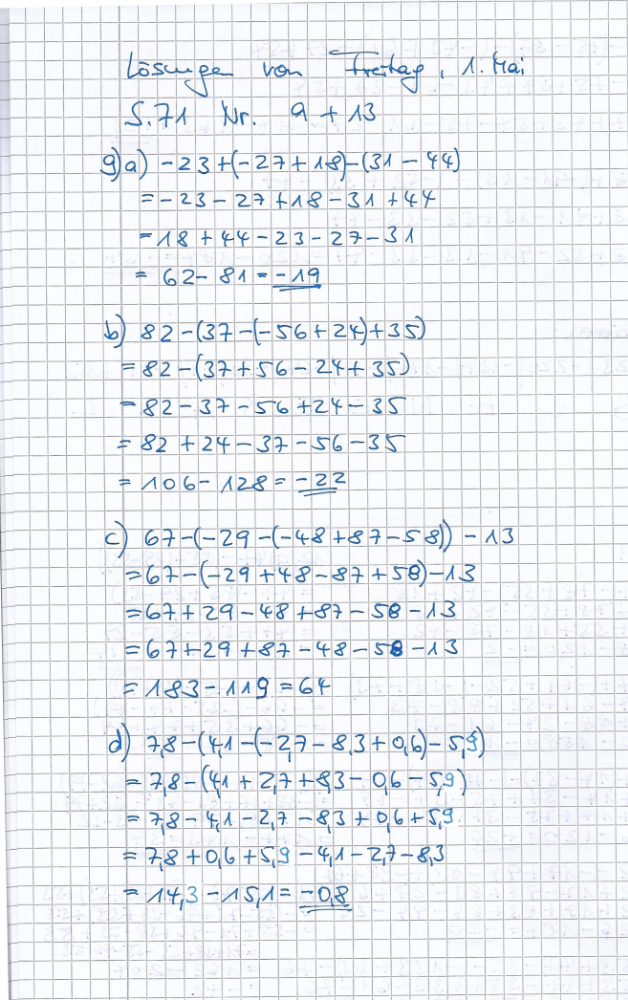 Lösungen von Freitag, 1. Mai
S.71 Nr. 9 + 13
9)a) -23+(-27+18)-(31-44)
=-23-27+18-31+44
=18+44-23-27-31
= 62-81=-19
b) 82-(37-(-56+24)+35)
=82-(37+56-24+35)
=82-37-56+24-35
= 82+24-37-56-35
= 106-128=-22
c) 67-(-29-(-48+87-58))-13
=67-(-29+48-87+58)-13
=67+29-48+87-58-13
=67+29+87-48-58-13
= 183-119=64
d) 7,8-(4,1-(-2,7-8,3+0,6)-5,9)
= 7,8-(4,1+2,7+8,3-0,6-5,9)
= 7,8-4,1-2,7-8,3+0,6+5,9
= 7,8+0,6+5,9-4,1-2,7-8,3
= 14,3-15,1=-0,8